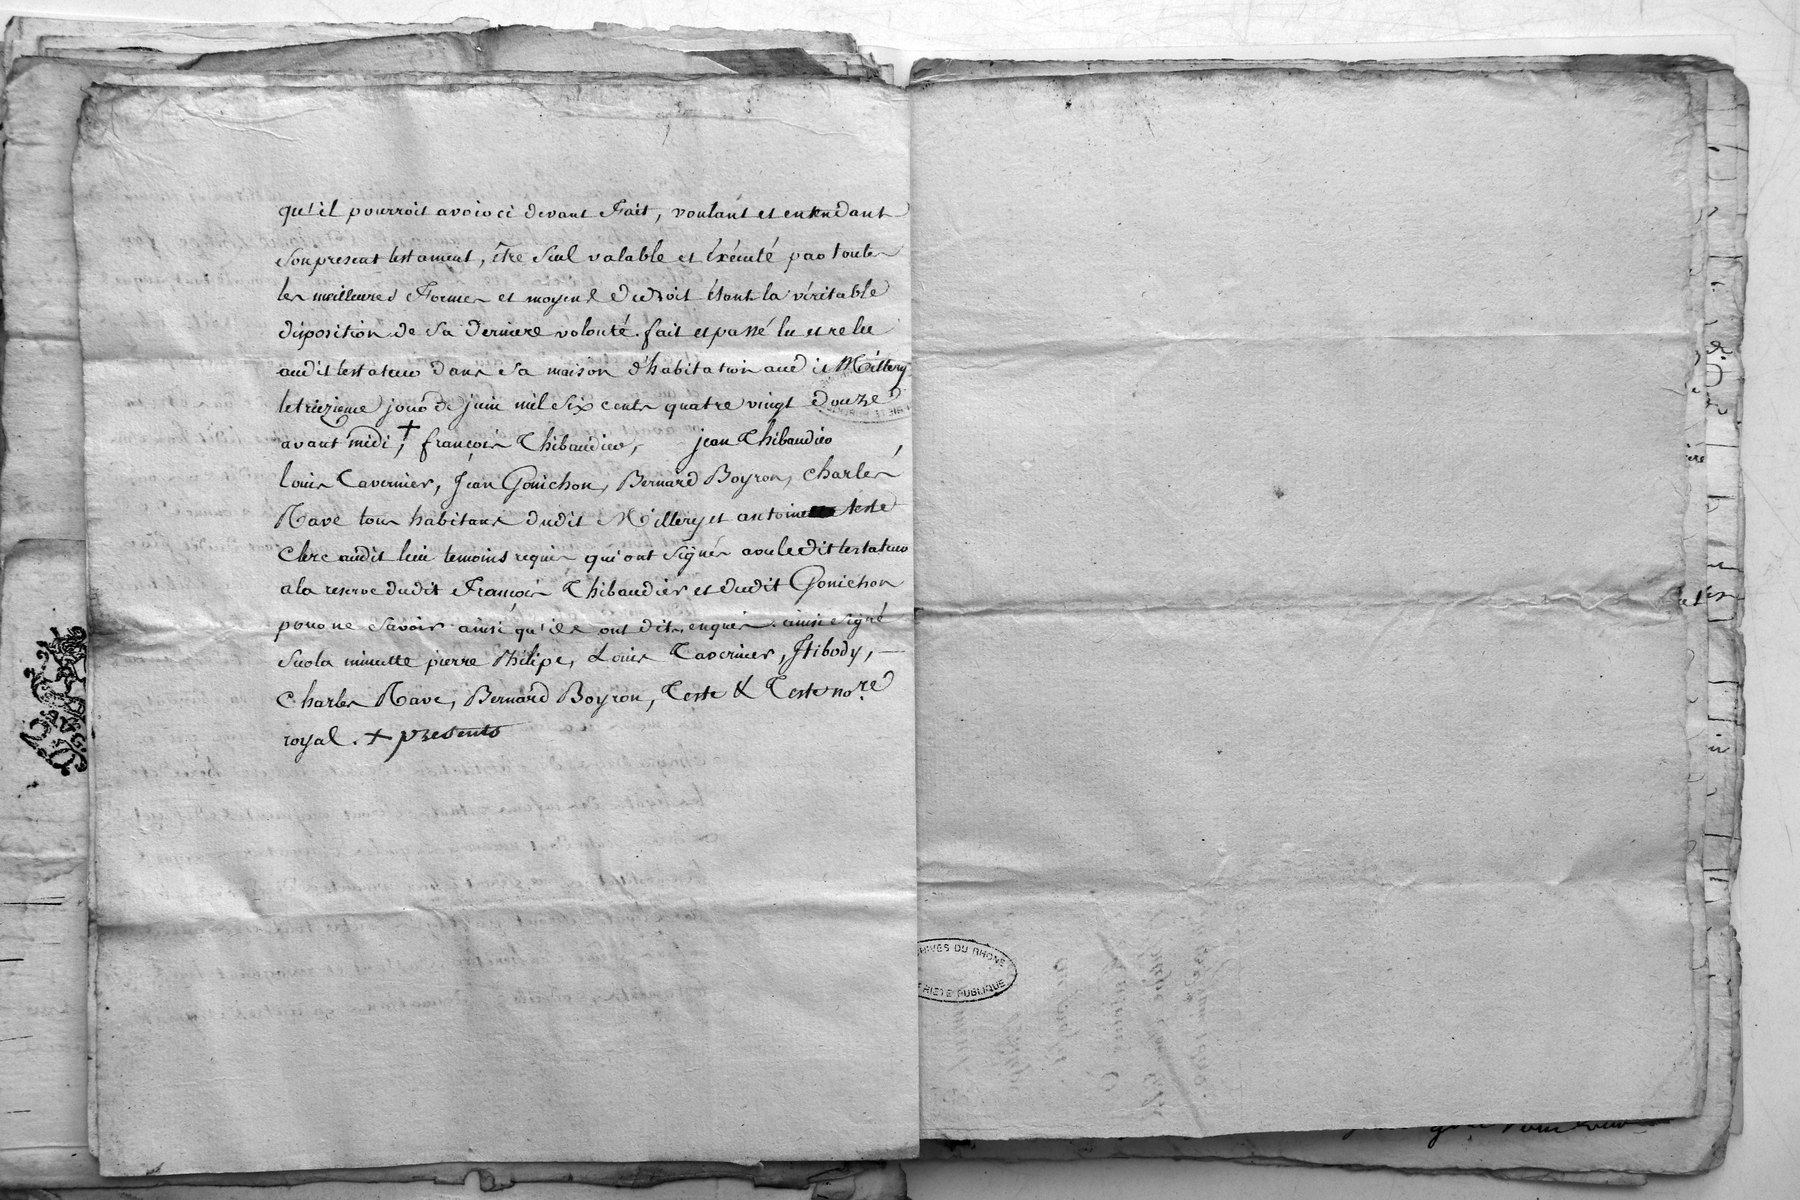 qu'il pourroit avoir ci devant Fait, voulant et entendant
son present testament, être seul valable et éxécuté par toutes
les meilleures Formes et moyens de droit étant la véritable
disposition de sa derniere volonté. fait et passé lu et relu
audit testateur dans sa maison d'habitation audit Millery
le treizieme jour de juin mil six cents quatre vingt douze
avant midi, + françois Thibaudier, jean Thibaudier,
louis Tavernier, jean Gonichon, Bernard Boyron, charles
Rave tous habitans dudit Millery et antoine teste
Clerc audit lieu temoins requis qui ont signés avec ledit testateur
a la reserve dudit François Thibaudier et dudit Gonichon
pour ne savoir ainsi qu'ils ont dit, enquis. ainsi signé
sur la minutte pierre Philipe, Louis Tavernier, J tibody, —
Charles Rave, Bernard Boyron, Teste & Teste no.re
royal. + presents
ARCHIVES DU RHONE
PROPRIETE PUBLIQUE